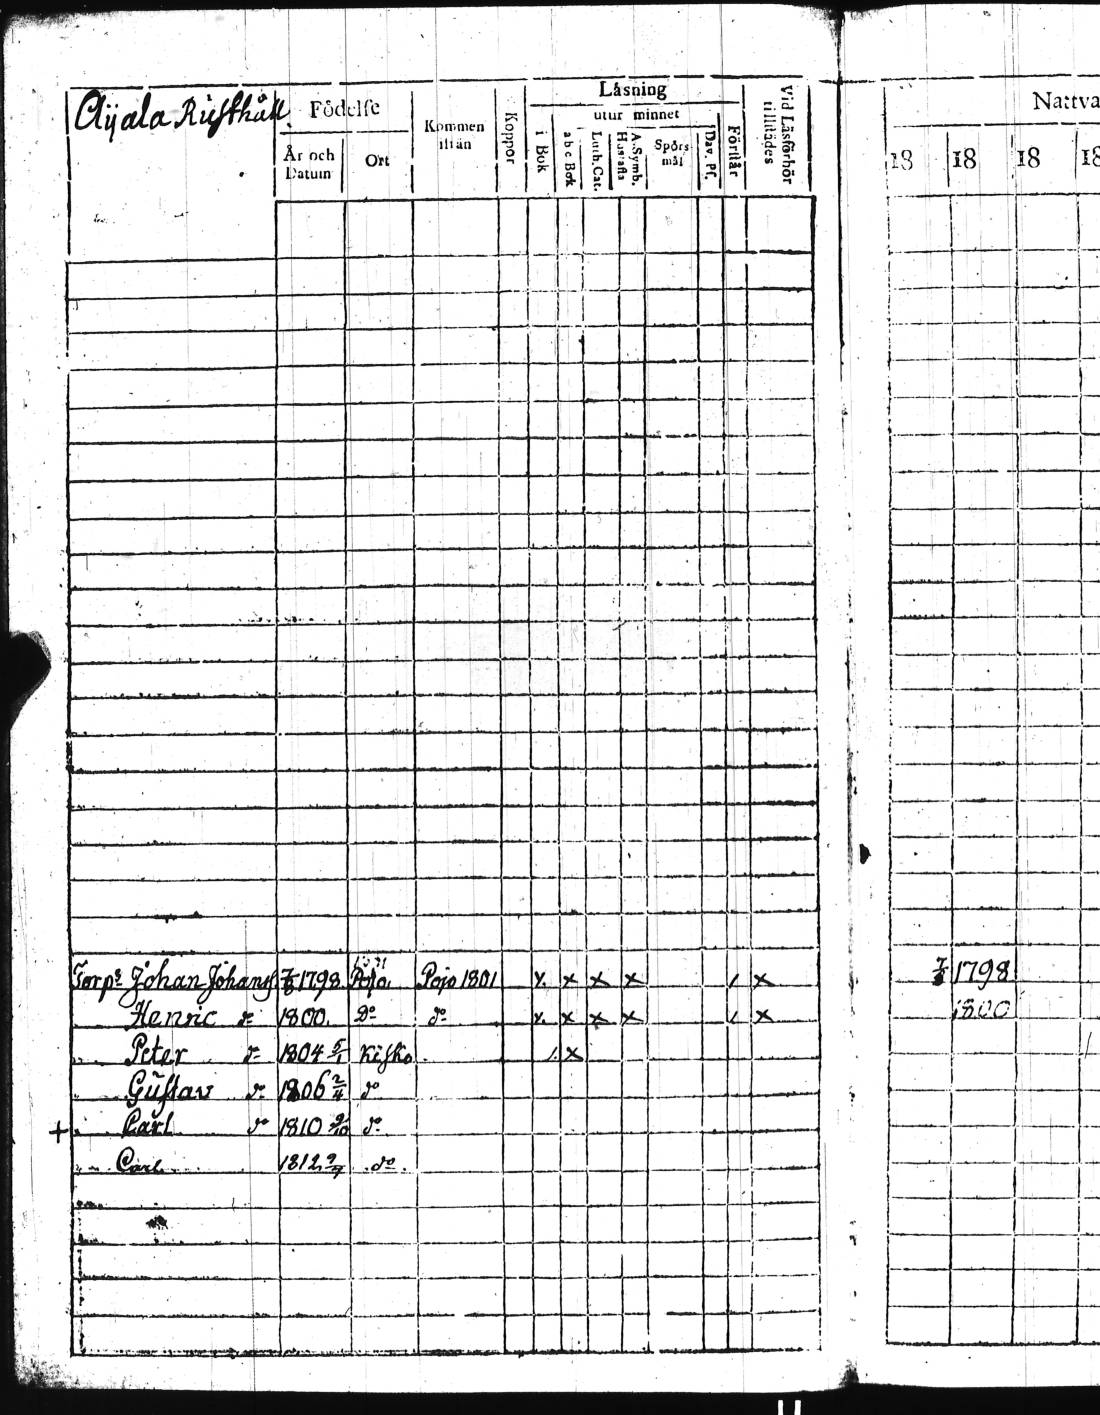 Aÿala Rusthåll.
Födelse
År och Datum
Ort
Kommen ifrån
Koppor
Läsning
i Bok
utur minnet
a b c Bok
Luth. Cat.
Hustafla
A. Symb.
Spörsmål
Dav. Ps.
Förstår
Vid Läsförhör tillstädes
Nattva
18 18 18 18
Torps Johan Johans 7/8 1798. Pojo. Pojo 1801 x. x x x / x 7/8 1798
Henric do 1800. Do do x. x x x / x 1800
" Peter do 1804 5/1 Kisko. /. x /
" Gustav do 1806 2/4 do
+ " Carl do 1810 9/10 do
" Carl 1812 9/7 do.